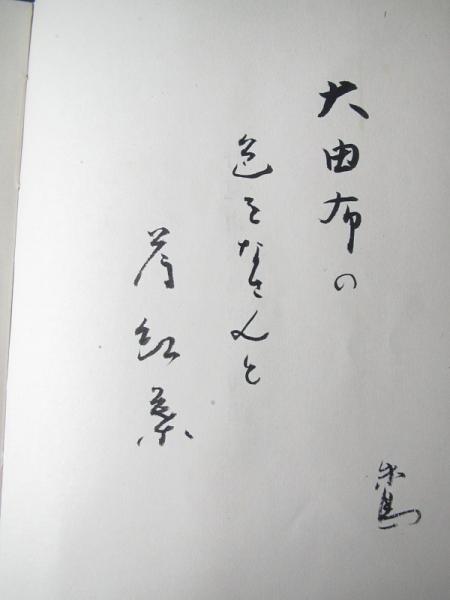 大由布の
色をなさんと
草紅葉
朱鳥